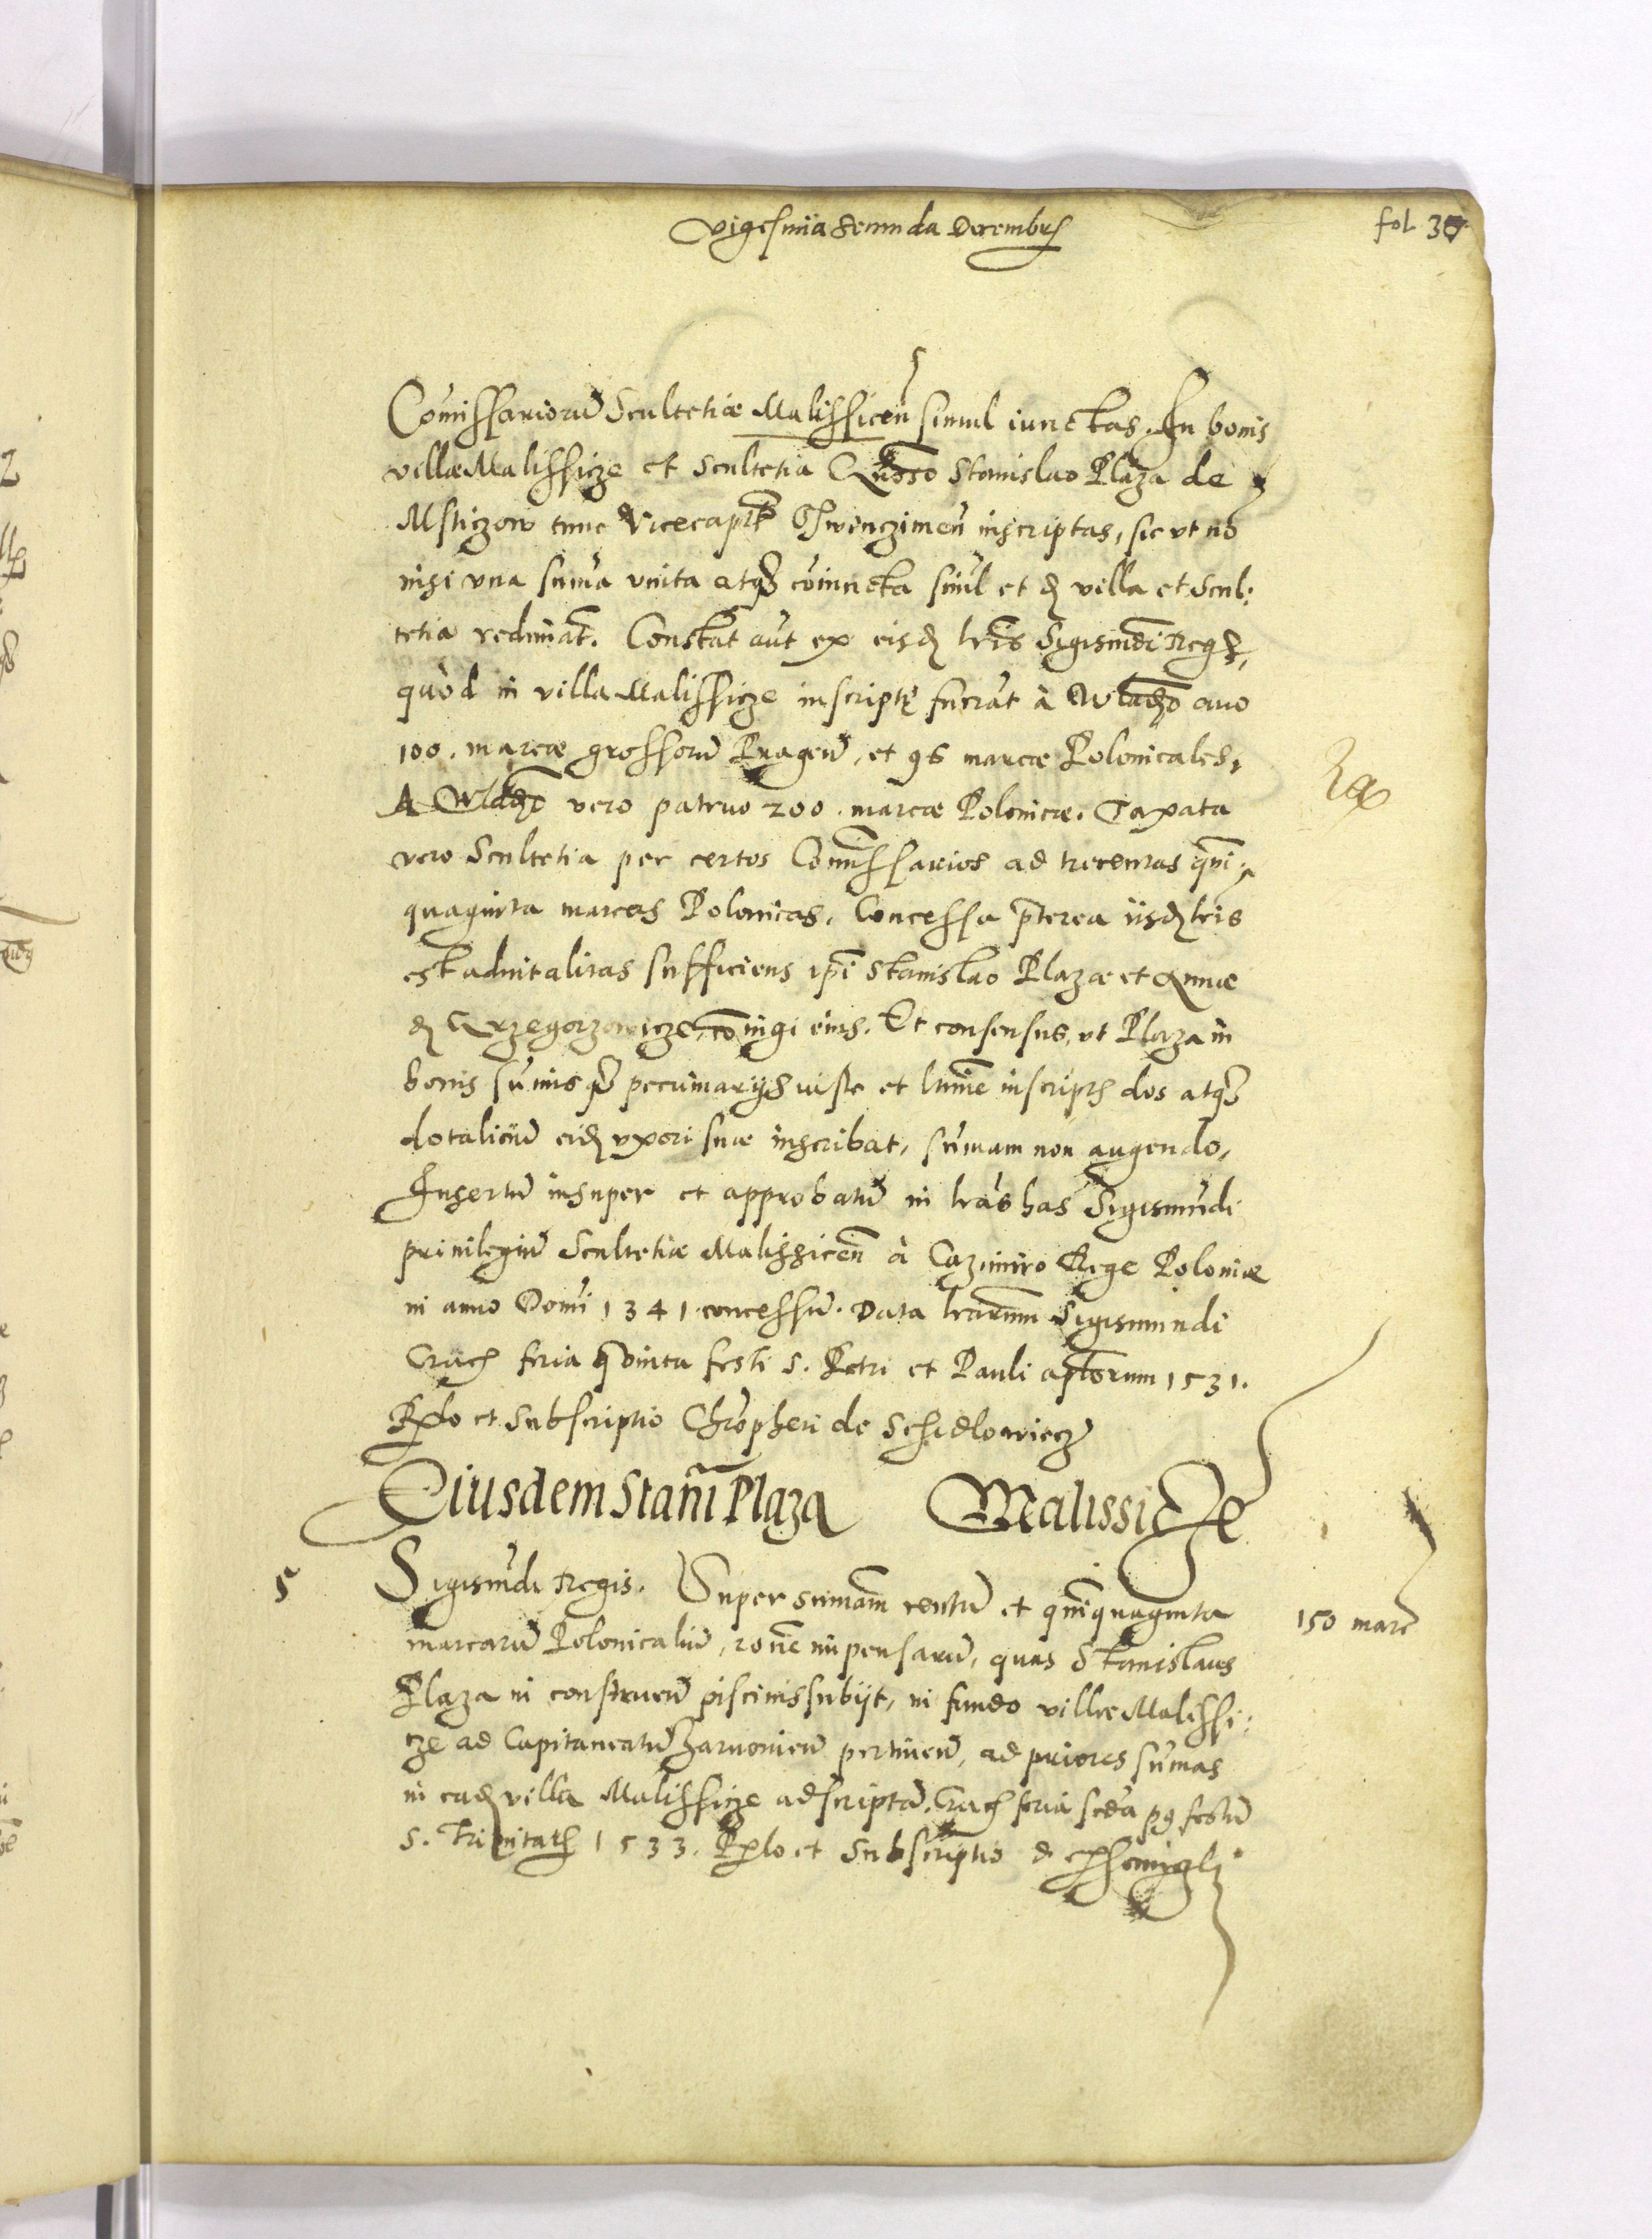 Vigesima Secunda Decembris
fol. 30
Comissariorū Scultetiæ Malissiceñ simul iunctas. In bonis
villæ Malissicze et Scultetia Stanislao Plaza de
Msticzow tunc Vicecaptō Oswenczimeñ inscriptas, sic vt nō
nisi vna suma vnita atq coniuncta simul et villa et Scul:
tetia redimat. Constat aut ex eisd lris Sigismdi Regs,
quòd in villa Malissicze inscriptę fuerāt à Wladō auo
100. marcæ grossorū Prageñ, et 96 marcæ Polonicales,
A Wladō vero patruo 200. marcæ Polonicæ. Taxata
vero Scultetia per certos Comissarios ad trecentas quin:
quaginta marcas Polonicas. Concessa pterea iisd lris
est aduitalitas sufficiens ipi Stanislao Plazæ et Annæ
d Grzegorzowicze, coniugi eius. Et consensus, vt Plaza in
bonis sumisq pecuniarijs iuste et ltime inscripts dos atq
dotaliciū eid vxori suæ inscribat, sumam non augendo,
Insertū insuper et approbatū in lras has Sigismūdi
priuilegiū Scultetiæ Malissiceñ à Cazimiro Rege Poloniæ
in anno Domi 1341. concessū. Data lrarum Sigismundi
Crac feria quinta festi S. Petri et Pauli aplorum 1531.
Rlo et Subscriptio Chropheri de Schidlowiecz
Eiusdem Stani Plaza Malissicze
5
Sigismūdi Regis. Super sumam centū et quinquaginta
150 marc
marcarū Polonicaliū, rone impensarū, quas Stanislaus
Plaza in construeñ piscinis subijt, in fundo villæ Malissi:
cze ad Capitaneatū Zarnouieñ pertineñ, ad priores sumas
in ead villa Malissicze adscriptā. Crac feria scda p9 festū
S. Trinitats 1533. Rlo et Subscriptio